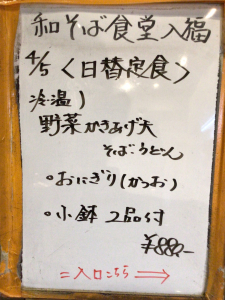 和そば食堂入福
4/5〈日替定食〉
冷温)
野菜かきあげ天
そば・うどん
•おにぎり(かつお)
•小鉢 2品付
¥880-
=入口こちら→